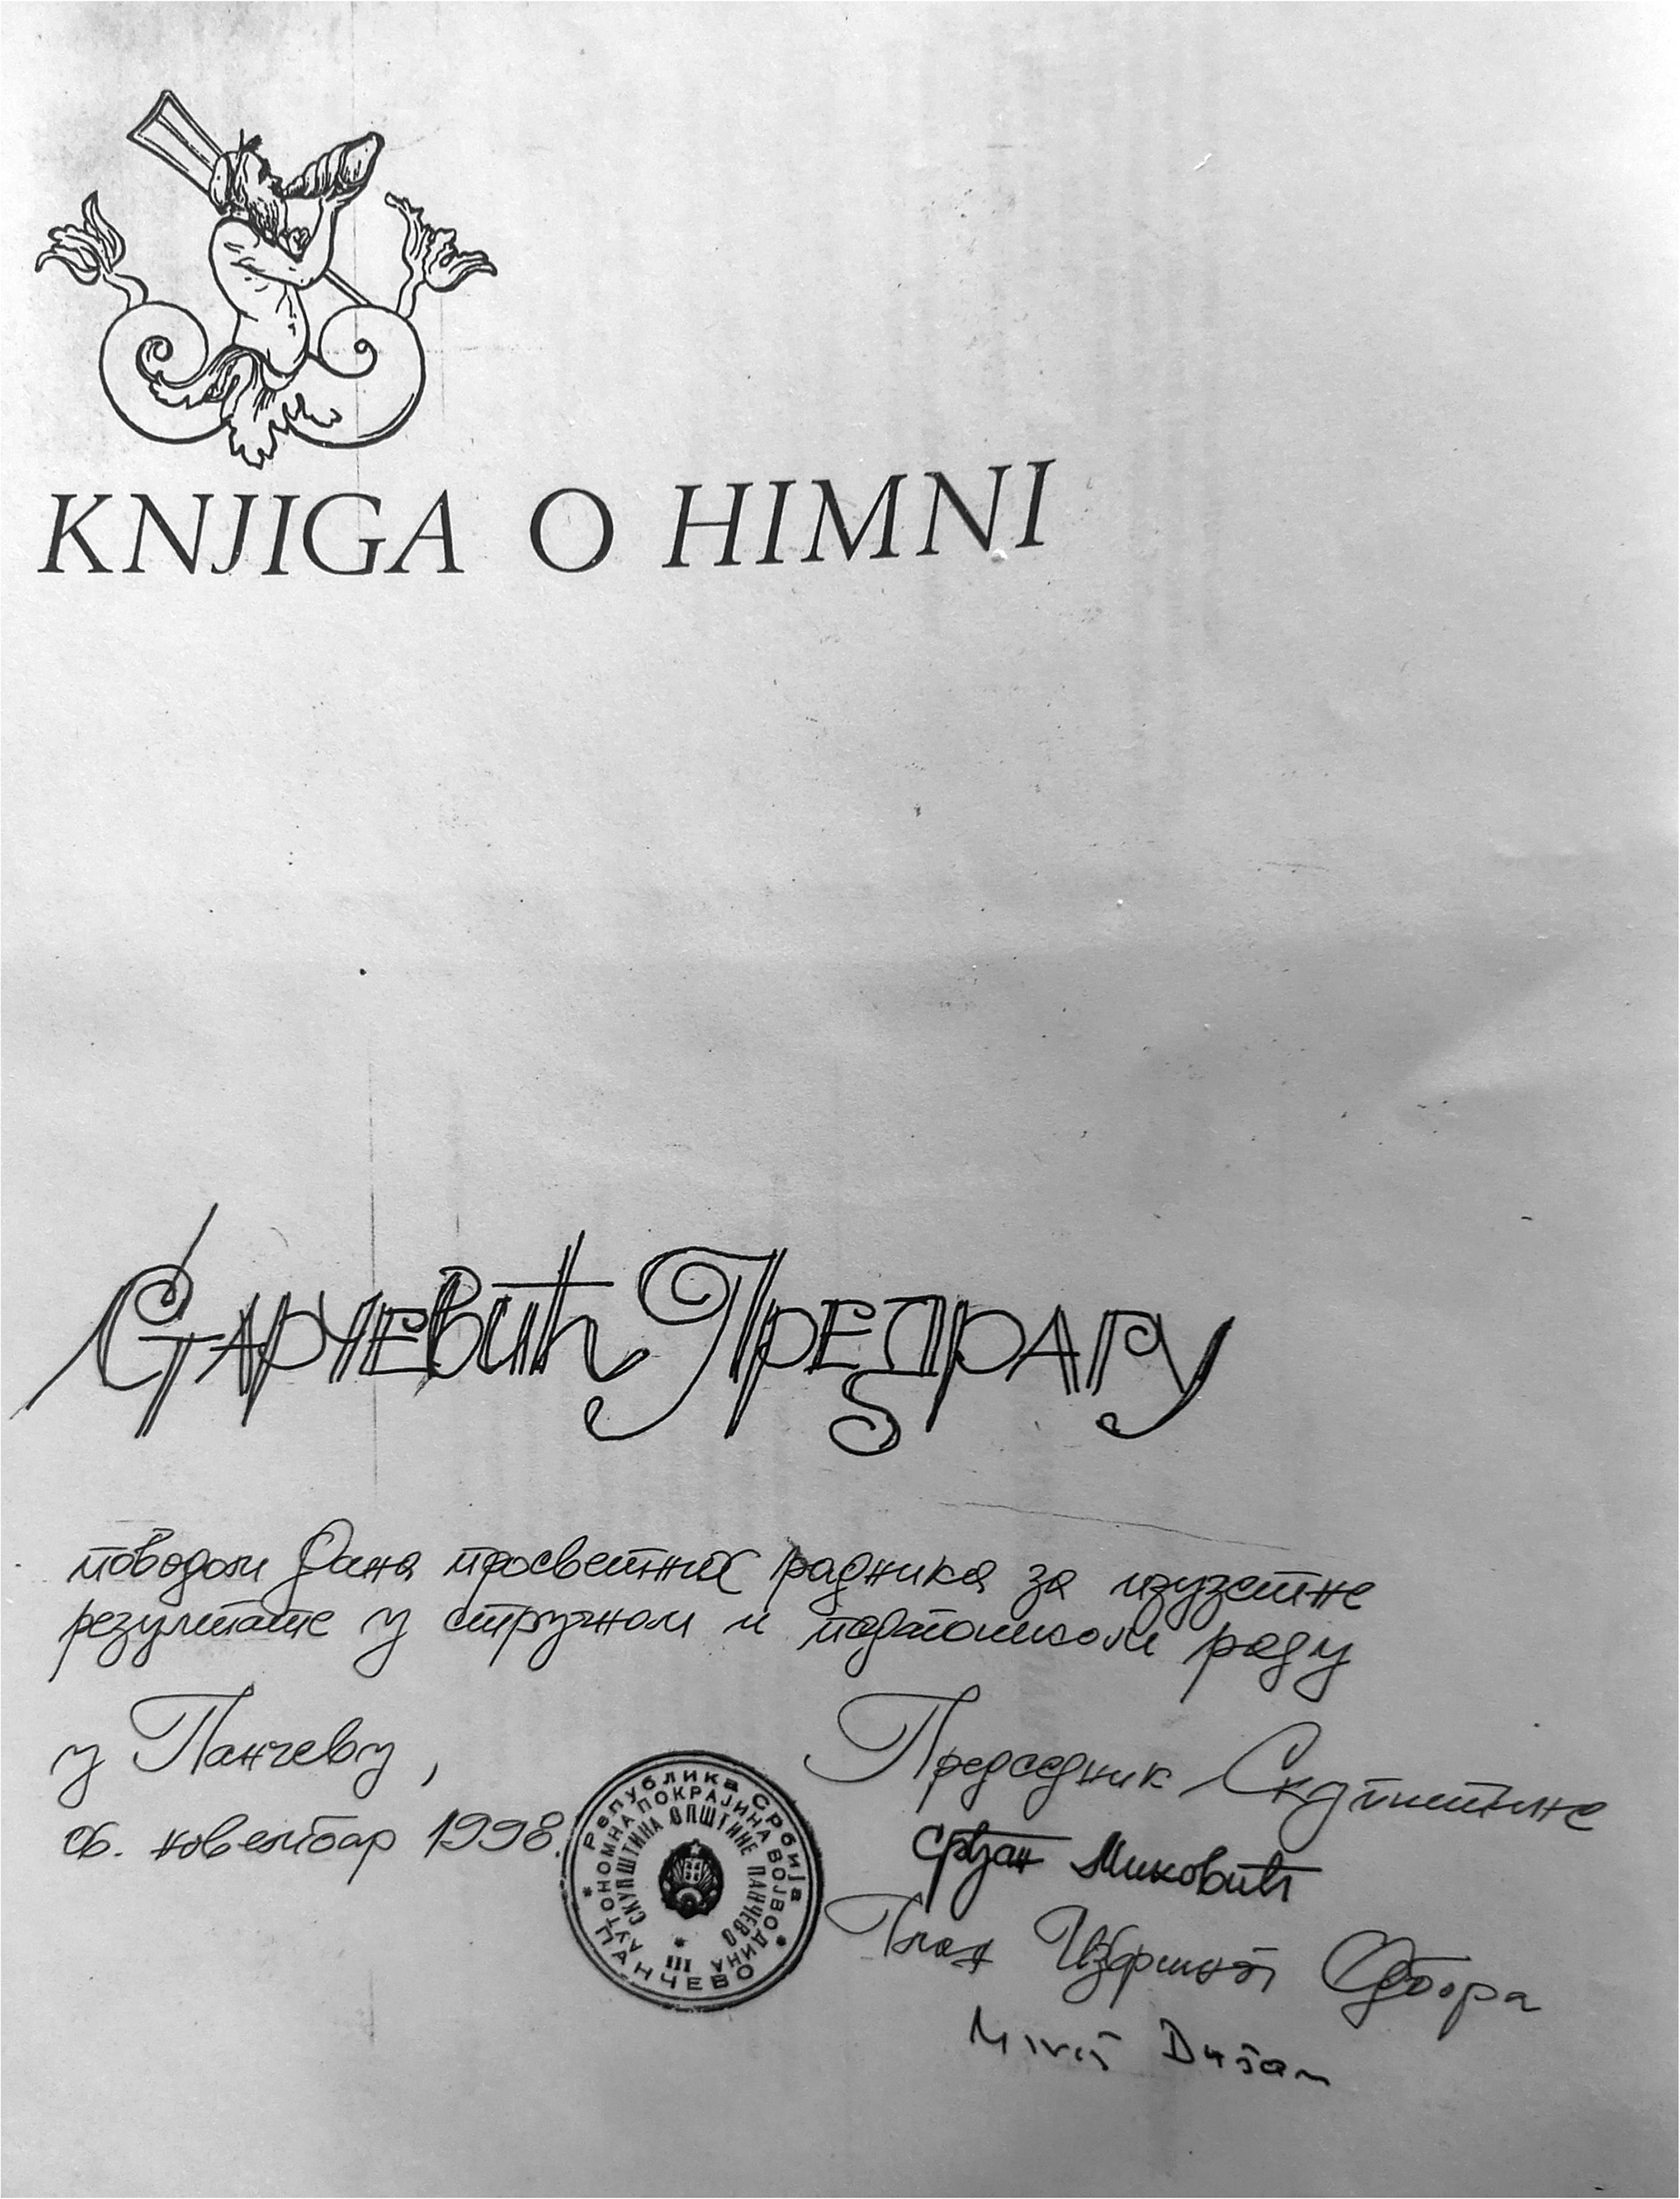 KNJIGA O HIMNI
Старчевић Предрагу
поводом Дана просветних радника за изузетне
резултате у стручном и педагошком раду
у Панчеву,
06. новембар 1998.
Република Србија
АУТОНОМНА ПОКРАЈИНА ВОЈВОДИНА
СКУПШТИНА ОПШТИНЕ ПАНЧЕВО
III
ПАНЧЕВО
Председник Скупштине
Срђан Миковић
Извршног Одбора
Dušan